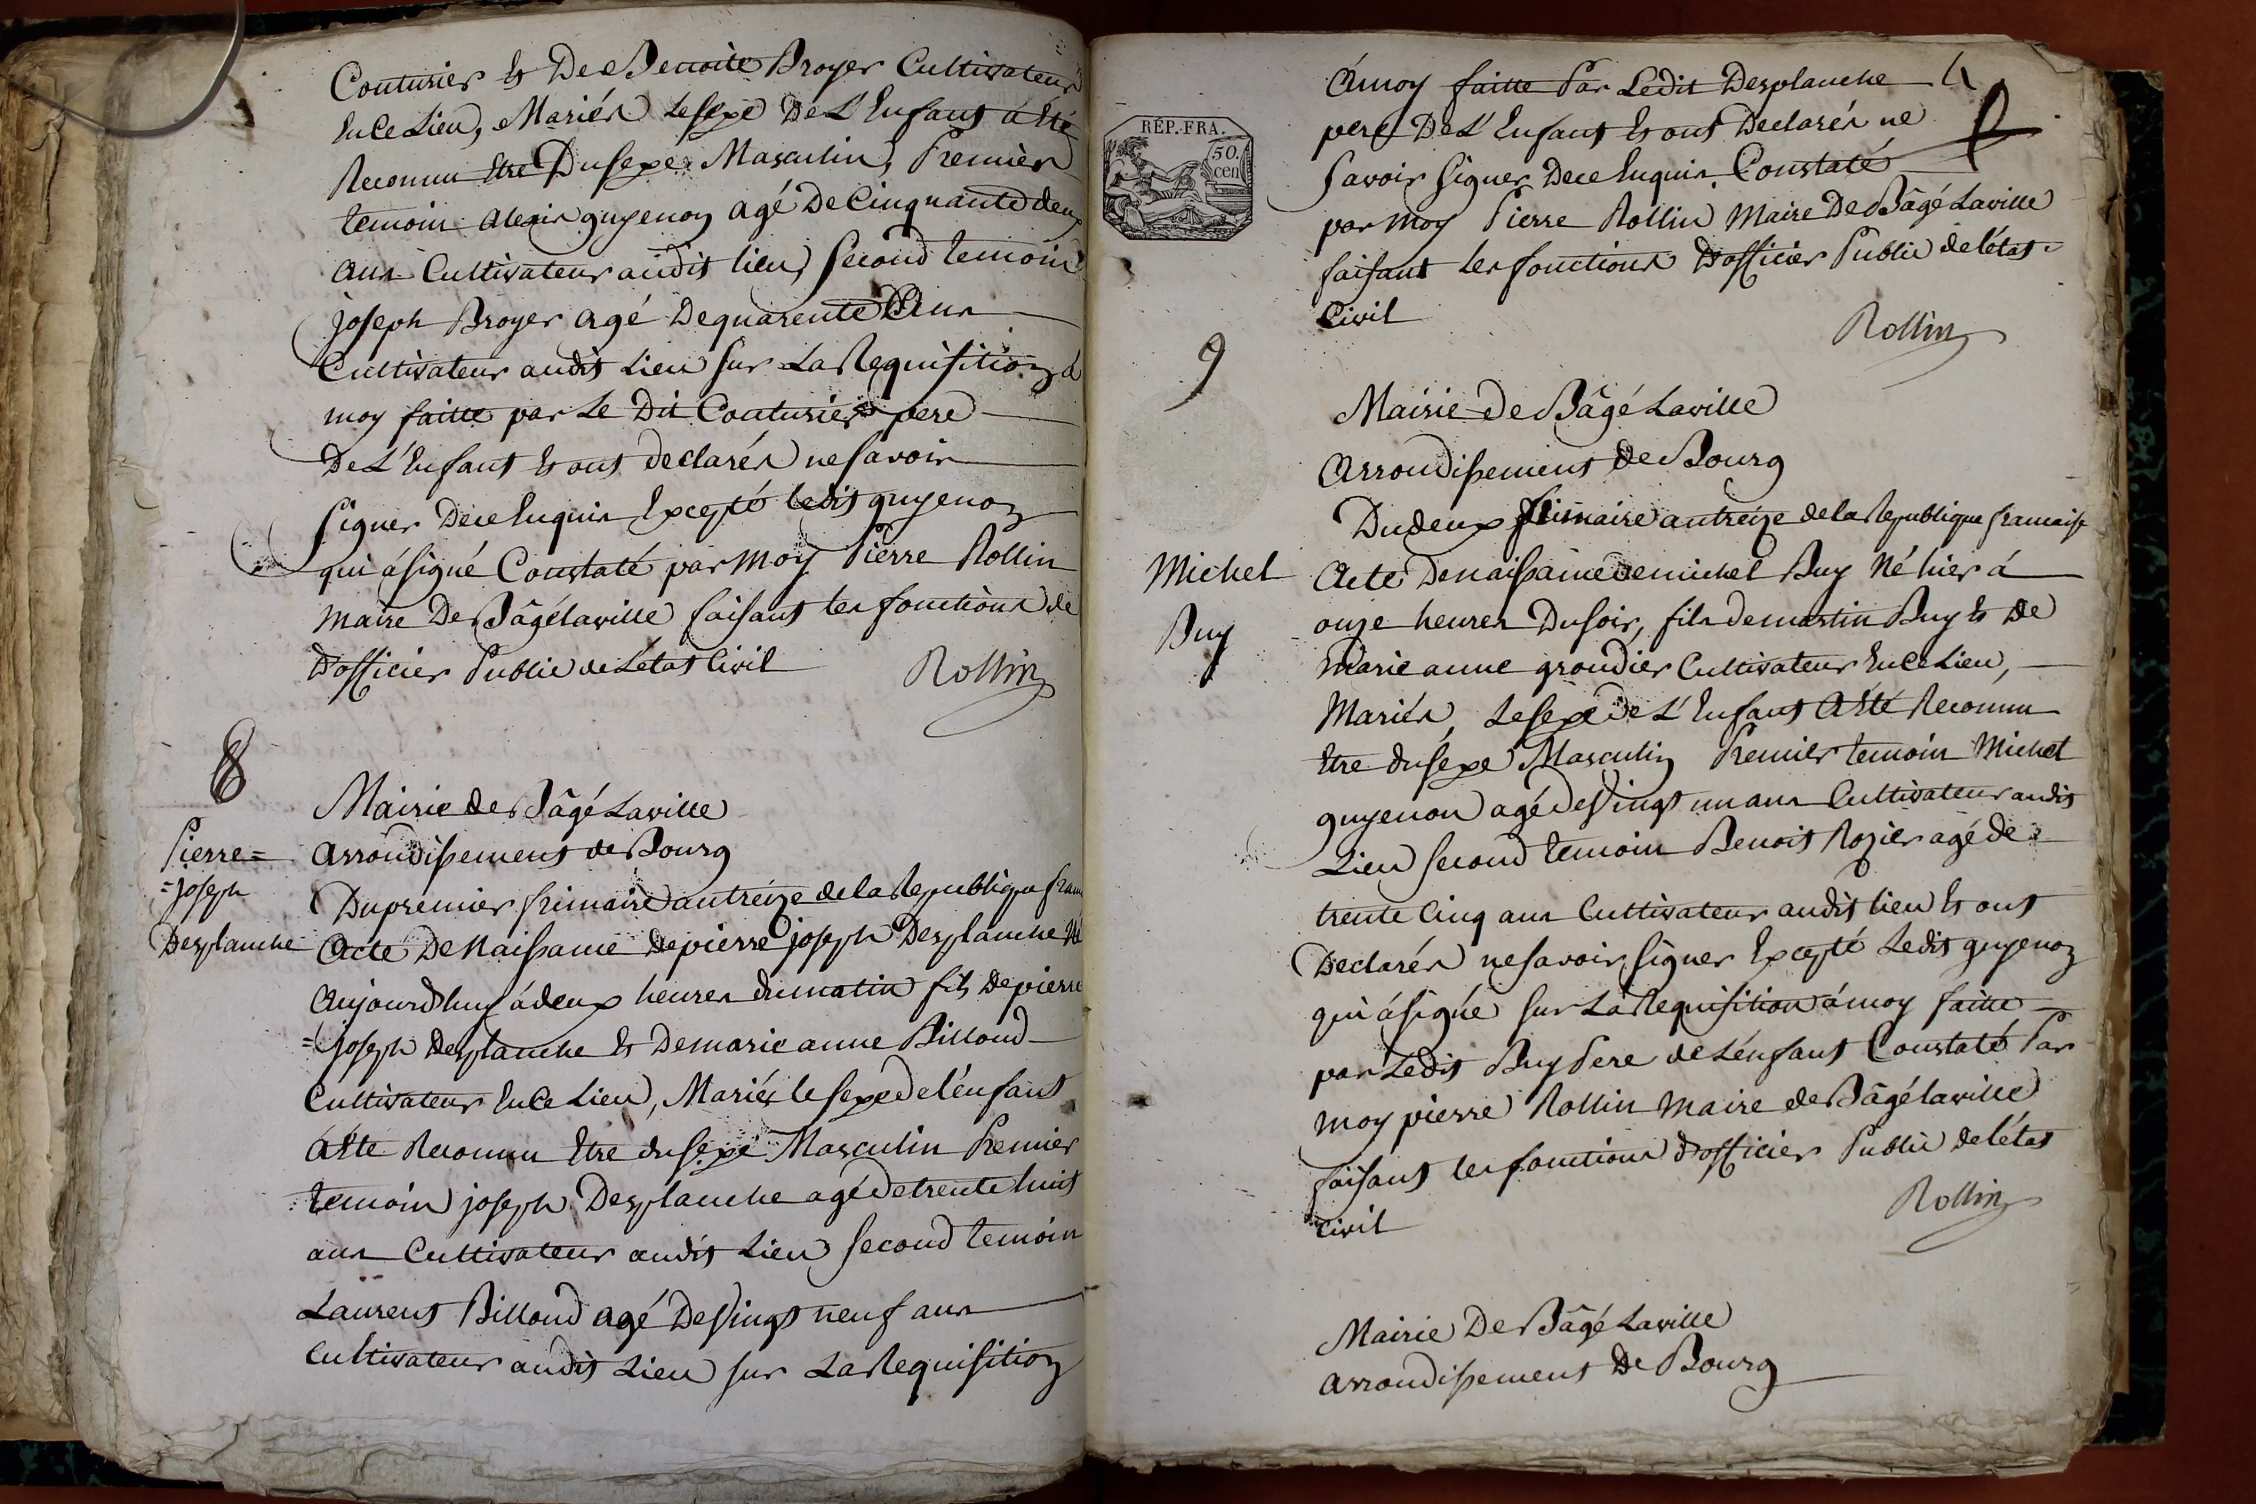 Couturier et De Benoite Broyer Cultivateur
En Ce Lieu, Mariés Le sexe De L'Enfant a Eté
Reconnu Etre Du sexe Masculin, Premier
temoin alexis guyenon agé De Cinquante deux
ans Cultivateur audit lieu, second temoin
joseph Broyer agé De quarente ans
Cultivateur audit Lieu sur La Requisition à
moy faitte par Le Dit Couturier pere
De L'Enfant Et ont declarés ne savoir
signer De ce Enquis Excepté ledit guyenon
qui à signé Constaté par moy Pierre Rollin
Maire De Bâgé laville faisant les fonctions de
D'officier Public de Létat Civil
Rollin
8
Mairie de Bâgé Laville
arrondissement de Bourg
Pierre=
=joseph
Desplanche
Du premier frimaire an treize de la Republique fran
Acte De Naissance de pierre joseph Desplanche Né
Aujourdhuy à deux heures du matin fils De pierre
=joseph desplanche Et De marie anne Billoud
Cultivateur En Ce Lieu, Mariés le sexe de l'énfant
à Eté Reconnu Etre du sexe Masculin Premier
temoin joseph Desplanche agé de trente huit
ans Cultivateur audit Lieu second temoin
Laurent Billoud agé De Vingt neuf ans
Cultivateur audit Lieu sur La Requisition
4
à moy faitte Par Ledit Desplanche
pere De L'Enfant Et ont Declarés ne
savoir signer De ce Enquis Constaté
par moy Pierre Rollin Maire De Bâgé Laville
faisant les fonctions D'officier Public de létat
Civil
Rollin
RÉP. FRA.
50.
cen
9
Mairie de Bâgé Laville
Arrondissement de Bourg
Du deux frimaire an treize de la Republique francaise
Michel
Buy
Acte De naissance de michel Buy Né hier à
onze heures Du soir, fils de martin Buy Et De
Marie anne grondier Cultivateur En Ce Lieu,
Mariés, Le sexe de L'Enfant à Eté Reconnu
Etre du sexe Masculin Premier temoin Michel
guyenon agé de Vingt un ans Cultivateur audit
Lieu second temoin Benoit Rozier agé de
trente Cinq ans Cultivateur audit lieu Et ont
Declarés ne savoir signer Excepté Ledit guyenon
qui à signé sur La Requisition à moy faitte
par Ledit Buy Pere de Lénfant Constaté Par
moy pierre Rollin Maire de Bâgé laville
faisant les fonctions d'officier Public de létat
Civil
Rollin
Mairie De Bâgé Laville
arrondissement De Bourg